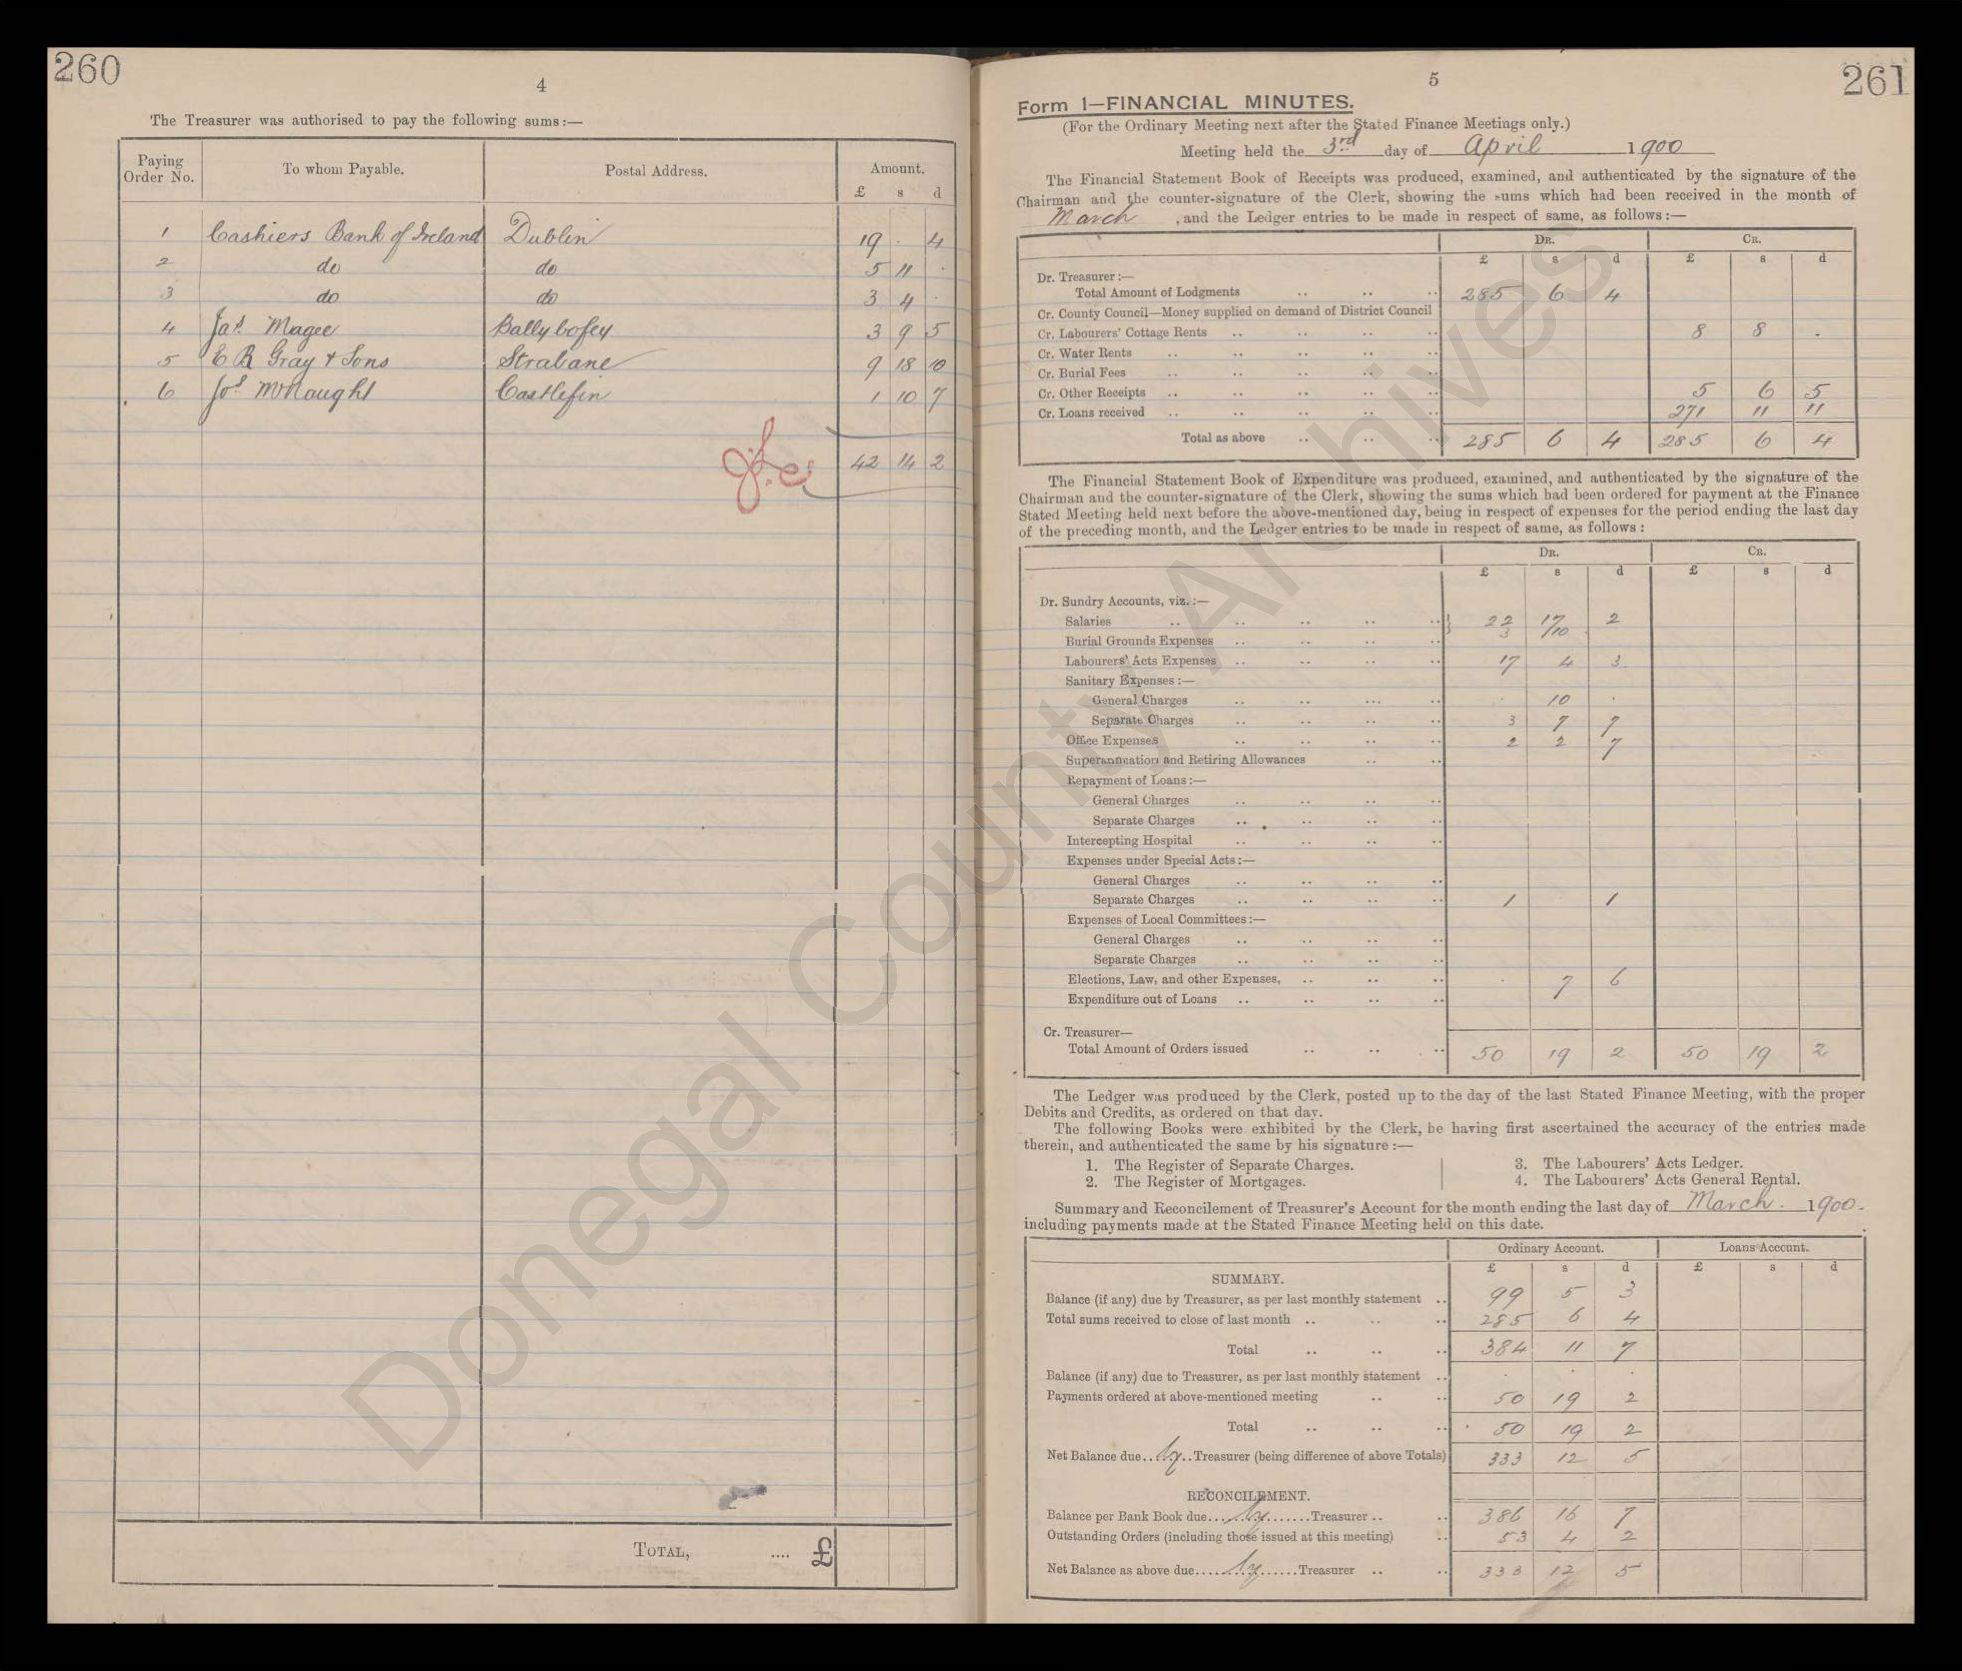 260
4
The Treasurer was authorised to pay the following sums:—
Paying Order No. To whom Payable. Postal Address. Amount.
£ s d
1 Cashiers Bank of Ireland Dublin 19 . 4
2 do do 5 11 .
3 do do 3 4 .
4 Jas. Magee Ballybofey 3 9 5
5 E R Gray & Sons Strabane 9 18 10
6 Jos. McNaught Castlefin 1 10 7
42 14 2
TOTAL, .... £
261
5
Form 1—FINANCIAL MINUTES.
(For the Ordinary Meeting next after the Stated Finance Meetings only.)
Meeting held the 3rd day of April 1900
The Financial Statement Book of Receipts was produced, examined, and authenticated by the signature of the
Chairman and the counter-signature of the Clerk, showing the sums which had been received in the month of
March , and the Ledger entries to be made in respect of same, as follows:—
DR. CR.
£ s d £ s d
Dr. Treasurer:—
Total Amount of Lodgments .. .. .. 285 6 4
Cr. County Council—Money supplied on demand of District Council
Cr. Labourers' Cottage Rents .. .. .. .. 8 8 .
Cr. Water Rents .. .. .. .. ..
Cr. Burial Fees .. .. .. .. ..
Cr. Other Receipts .. .. .. .. .. 5 6 5
Cr. Loans received .. .. .. .. .. 271 11 11
Total as above .. .. .. 285 6 4 285 6 4
The Financial Statement Book of Expenditure was produced, examined, and authenticated by the signature of the
Chairman and the counter-signature of the Clerk, showing the sums which had been ordered for payment at the Finance
Stated Meeting held next before the above-mentioned day, being in respect of expenses for the period ending the last day
of the preceding month, and the Ledger entries to be made in respect of same, as follows:
DR. CR.
£ s d £ s d
Dr. Sundry Accounts, viz.:—
Salaries .. .. .. .. .. 22 17 2
Burial Grounds Expenses .. .. .. .. 3 10
Labourers' Acts Expenses .. .. .. .. 17 4 3
Sanitary Expenses:—
General Charges .. .. .... .. . 10 .
Separate Charges .. .. .. .. 3 7 7
Office Expenses .. .. .. .. 2 2 7
Superannuation and Retiring Allowances .. ..
Repayment of Loans:—
General Charges .. .. .. ..
Separate Charges .. .. .. ..
Intercepting Hospital .. .. .. ..
Expenses under Special Acts:—
General Charges .. .. .. ..
Separate Charges .. .. .. .. 1 1
Expenses of Local Committees:—
General Charges .. .. .. ..
Separate Charges .. .. .. ..
Elections, Law, and other Expenses, .. .. .. . 7 6
Expenditure out of Loans .. .. .. ..
Cr. Treasurer—
Total Amount of Orders issued .. .. .. 50 19 2 50 19 2
The Ledger was produced by the Clerk, posted up to the day of the last Stated Finance Meeting, with the proper
Debits and Credits, as ordered on that day.
The following Books were exhibited by the Clerk, he having first ascertained the accuracy of the entries made
therein, and authenticated the same by his signature:—
1. The Register of Separate Charges. 3. The Labourers' Acts Ledger.
2. The Register of Mortgages. 4. The Labourers' Acts General Rental.
Summary and Reconcilement of Treasurer's Account for the month ending the last day of March. 1900.
including payments made at the Stated Finance Meeting held on this date.
Ordinary Account. Loans Account.
£ s d £ s d
SUMMARY.
Balance (if any) due by Treasurer, as per last monthly statement .. 99 5 3
Total sums received to close of last month .. .. .. 285 6 4
Total .. .. .. 384 11 7
Balance (if any) due to Treasurer, as per last monthly statement .. . . .
Payments ordered at above-mentioned meeting .. .. 50 19 2
Total .. .. .. 50 19 2
Net Balance due..by..Treasurer (being difference of above Totals) 333 12 5
RECONCILEMENT.
Balance per Bank Book due....by.......Treasurer .. .. 386 16 7
Outstanding Orders (including those issued at this meeting) .. 53 4 2
Net Balance as above due.....by......Treasurer .. .. 333 12 5
Donegal County Archives